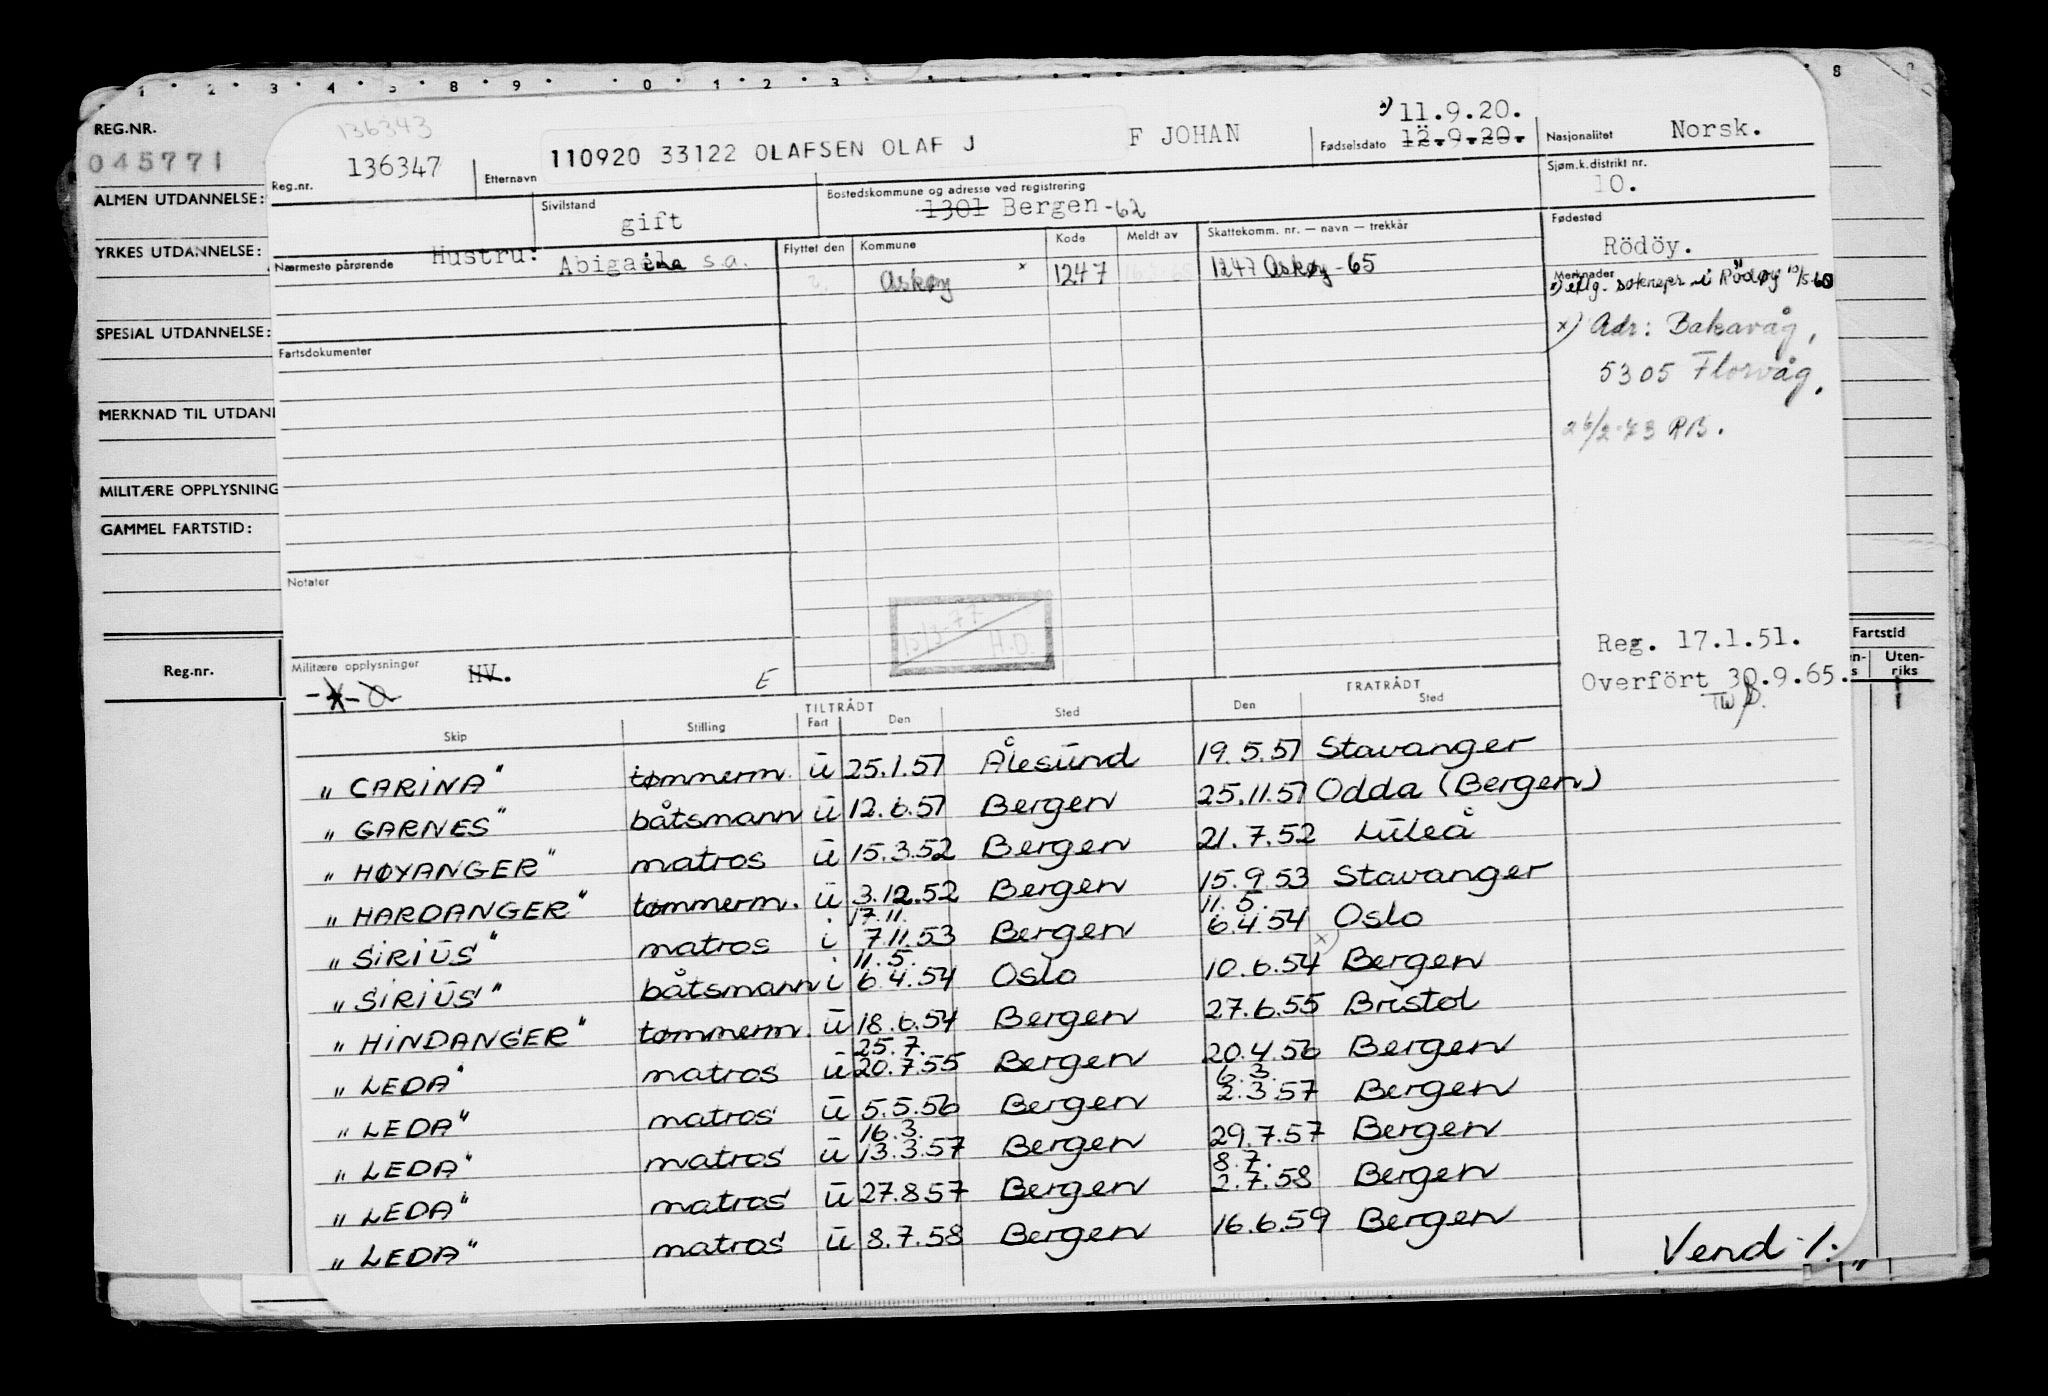 1 2 3 4 5 8 9 0 1 2 3 8
REG.NR.
045771
ALMEN UTDANNELSE:
YRKES UTDANNELSE:
SPESIAL UTDANNELSE:
MERKNAD TIL UTDAN
MILITÆRE OPPLYSNING
GAMMEL FARTSTID:
Reg.nr.
Fartstid
Uten-
riks
136343
Reg.nr. 136347 Etternavn 110920 33122 OLAFSEN OLAF J F JOHAN
11.9.20.
Fødselsdato 12.9.20. Nasjonalitet Norsk.
Sjøm.k.distrikt nr.
10.
Sivilstand gift
Bostedskommune og adresse ved registrering
1301 Bergen-62
Fødested
Rödöy.
Nærmeste pårørende Hustru: Abigaele s.a.
Flyttet den Kommune Kode Meldt av Skattekomm. nr. — navn — trekkår
Askøy x 1247 1247 Askøy -65
Merknader
x) Adr: Bakarvåg,
5305 Florvåg.
26/2-73 RB.
Fartsdokumenter
Notater
15/3-77
H.O.
Militære opplysninger HV. E
Reg. 17.1.51.
Overført 30.9.65.
TILTRÅDT FRATRÅDT
Skip Stilling Fart Den Sted Den Sted
"CARINA" tømmerm. u 25.1.57 Ålesund 19.5.57 Stavanger
"GARNES" båtsmann u 12.6.57 Bergen 25.11.57 Odda (Bergen)
"HØYANGER" matros u 15.3.52 Bergen 21.7.52 Luleå
"HARDANGER" tømmerm. u 3.12.52 Bergen 15.9.53 Stavanger
17.11. 11.5.
"SIRIUS" matros i 7.11.53 Bergen 6.4.54 Oslo
11.5. x)
"SIRIUS" båtsmann i 6.4.54 Oslo 10.6.54 Bergen
"HINDANGER" tømmerm. u 18.6.54 Bergen 27.6.55 Bristol
25.7.
"LEDA" matros u 20.7.55 Bergen 20.4.56 Bergen
6.3.
"LEDA" matros u 5.5.56 Bergen 2.3.57 Bergen
16.3.
"LEDA" matros u 13.3.57 Bergen 29.7.57 Bergen
8.7.
"LEDA" matros u 27.8.57 Bergen 2.7.58 Bergen
"LEDA" matros u 8.7.58 Bergen 16.6.59 Bergen
Vend ./.